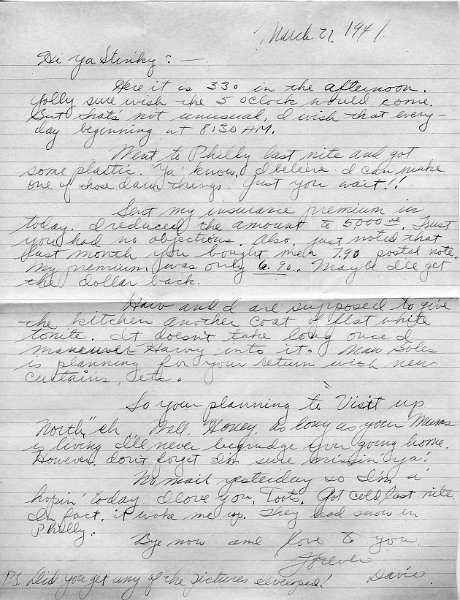 March 27, 1941
Hi Ya Stinky? —
Here it is 330 in the afternoon.
Golly sure wish the 5 oclock would come.
But thats not unusual, I wish that every-
day beginning at 8:30 AM.
Went to Philly last nite and got
some plastic. Ya' know, I believe I can make
one of those darn things. Just you wait!!
Sent my insurance premium in
today. I reduced the amount to 5000 00. Trust
you had no objections. Also, just noted that
last month you bought me a 7.90 postal note.
My premium was only 6.90. Maybe I'll get
the dollar back.
Harv and I are supposed to give
the kitchen another coat of flat white
tonite. It doesn't take long once I
maneuver Harvy into it.
is planning for your return with new
curtains, etc.
So your planning to "Visit up
North", eh. Well Honey, as long as your Mums
is living I'll never begrudge your going home.
However, don't forget I'm sure missin' ya!
No mail yesterday so I'm a
hopin' today. I love you, Toots. Got Cold last nite.
In fact, it woke me up. They had snow in
Philly.
Bye now and love to you
Forever
Davie
P.S. Did you get any of the pictures developed?